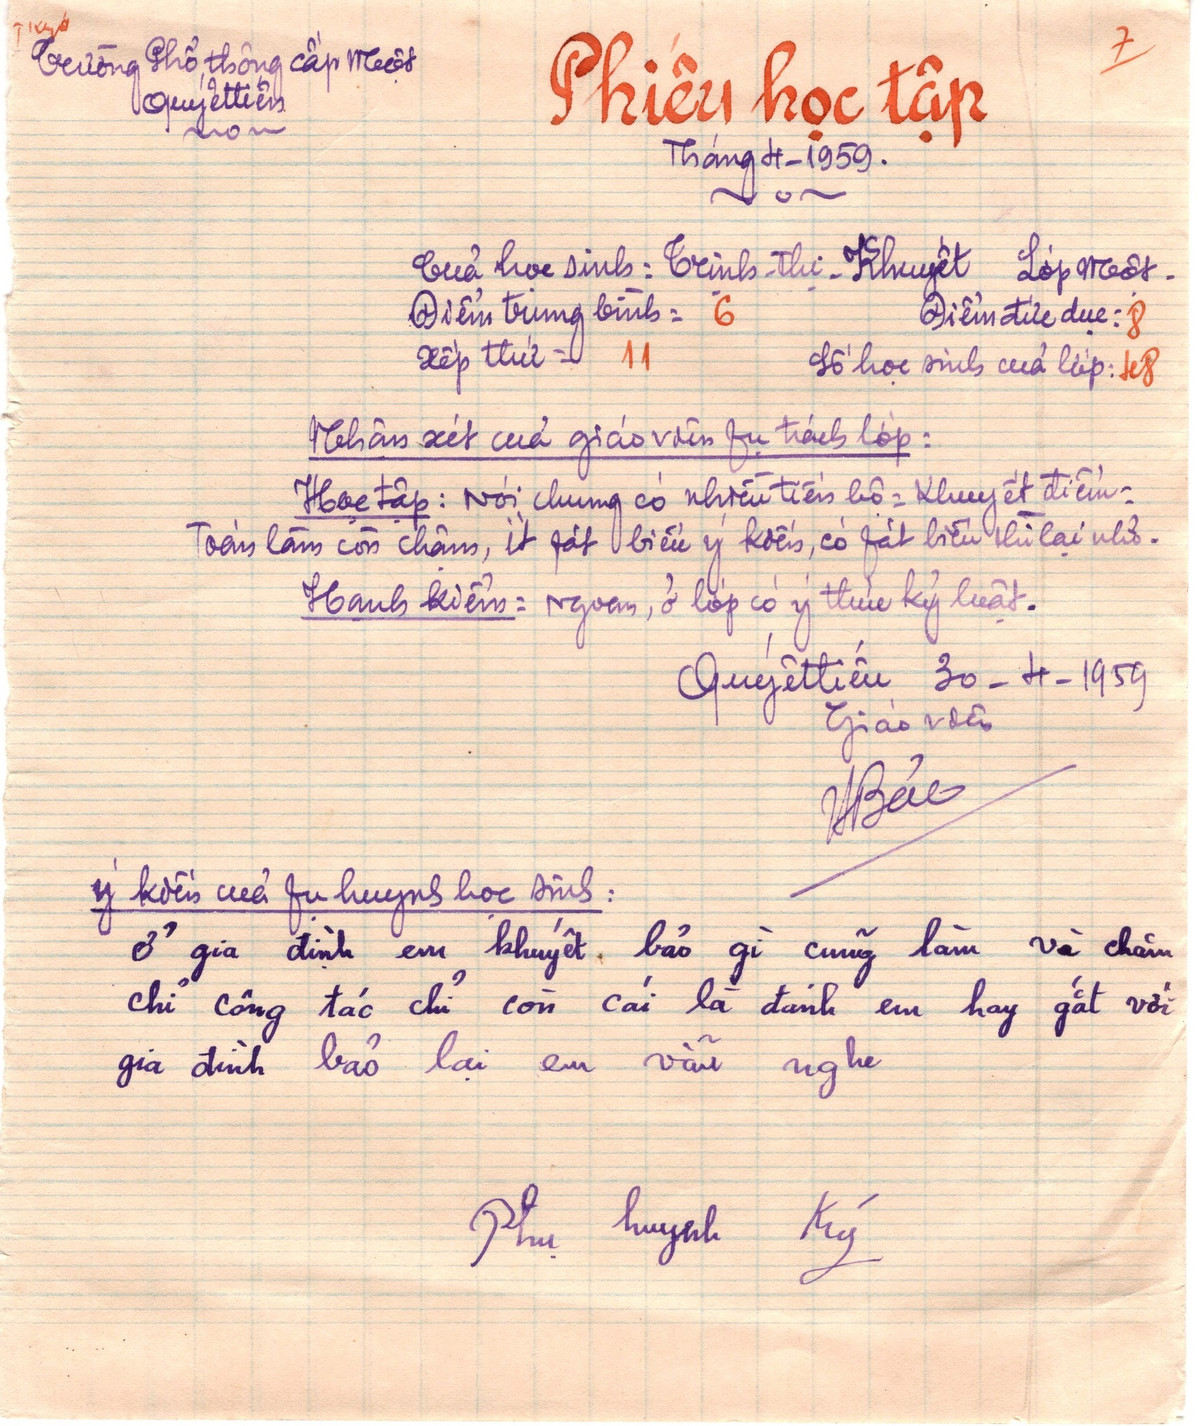 Trường Phổ thông cấp Một
Quyết tiến
7
Phiếu học tập
Tháng 4-1959.
Cuả học sinh: Trịnh-thị-Khuyết Lớp Một.
Điểm trung bình = 6 Điểm đức dục: 8
Xếp thứ = 11 Số học sinh cuả lớp: 48
Nhận xét cuả giáo viên fụ trách lớp:
Học tập: Nói chung có nhiều tiến bộ = Khuyết điểm =
Toán làm còn chậm, ít fát biểu ý kiến, có fát biểu thì lại nhỏ.
Hạnh kiểm = Ngoan, ở lớp có ý thức kỷ luật.
Quyết tiến 30-4-1959
Giáo viên
Bảo
Ý kiến cuả fụ huynh học sinh:
ở gia định em khuyết. bảo gì cũng làm và chăm
chỉ công tác chỉ còn cái là đánh em hay gắt với
gia đình bảo lại em vẫn nghe
Phụ huynh Ký